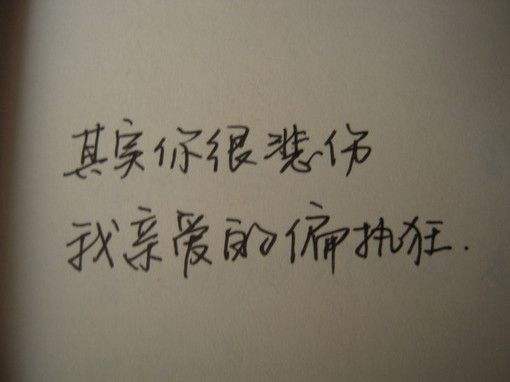 其实你很悲伤
我亲爱的偏执狂.